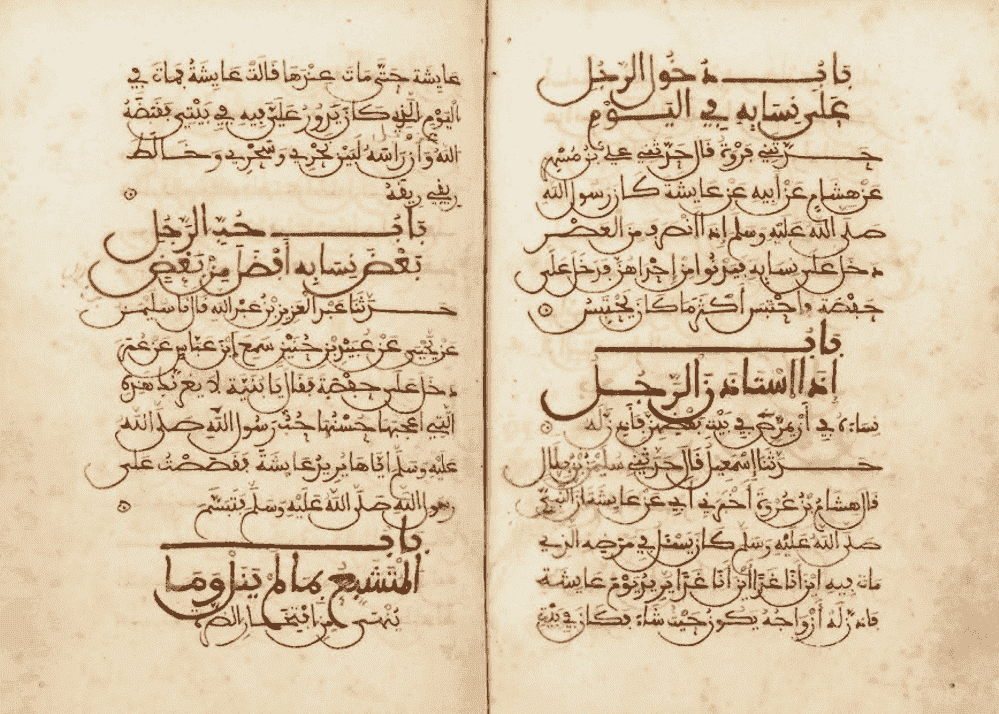 باب دخول الرجل
على نسايه في اليوم
حدثني فروة قال حدثني علي بن مسهر
عن هشام عن ابيه عن عايشة كان رسول الله
صلى الله عليه وسلم إذا انصرف من العصر
دخل على نسايه فيدنوا من إحداهن فدخل على
حفصة واحتبس أكثر ما كان يحتبس
باب
إذا استاذن الرجل
نساءه في أن يمرض في بيت بعضهن فأذن له
حدثنا إسمعيل قال حدثني سليمن بن بلال
قال هشام بن عروة أخبرني أبي عن عايشة أن النبي
صلى الله عليه وسلم كان يسئل في مرضه الذي
مات فيه اين أنا غدا أين أنا غدا يريد يوم عايشة
فاذن له أزواجه يكون حيث شاء فكان في بيت
عايشة حتى مات عندها قالت عايشة فمات في
اليوم الذي كان يدور علي فيه في بيتي فقبضه
الله وأن رأسه لبين نحري وسحري وخالط
ريقي ريقه
باب حب الرجل
بعض نسايه أفضل من بعض
حدثنا عبد العزيز بن عبد الله قال نا سليمن
عن يحيى عن عبيد بن حنين سمع ابن عباس عن عمر
دخل على حفصة فقال يا بنية لا يغرنك هذه
التي أعجبها حسنها حب رسول الله صلى الله
عليه وسلم اياها يريد عايشة فقصصت على
رسول الله صلى الله عليه وسلم فتبسم
باب
المتشبع بما لم ينل وما
ينهى من افتخار الضرة